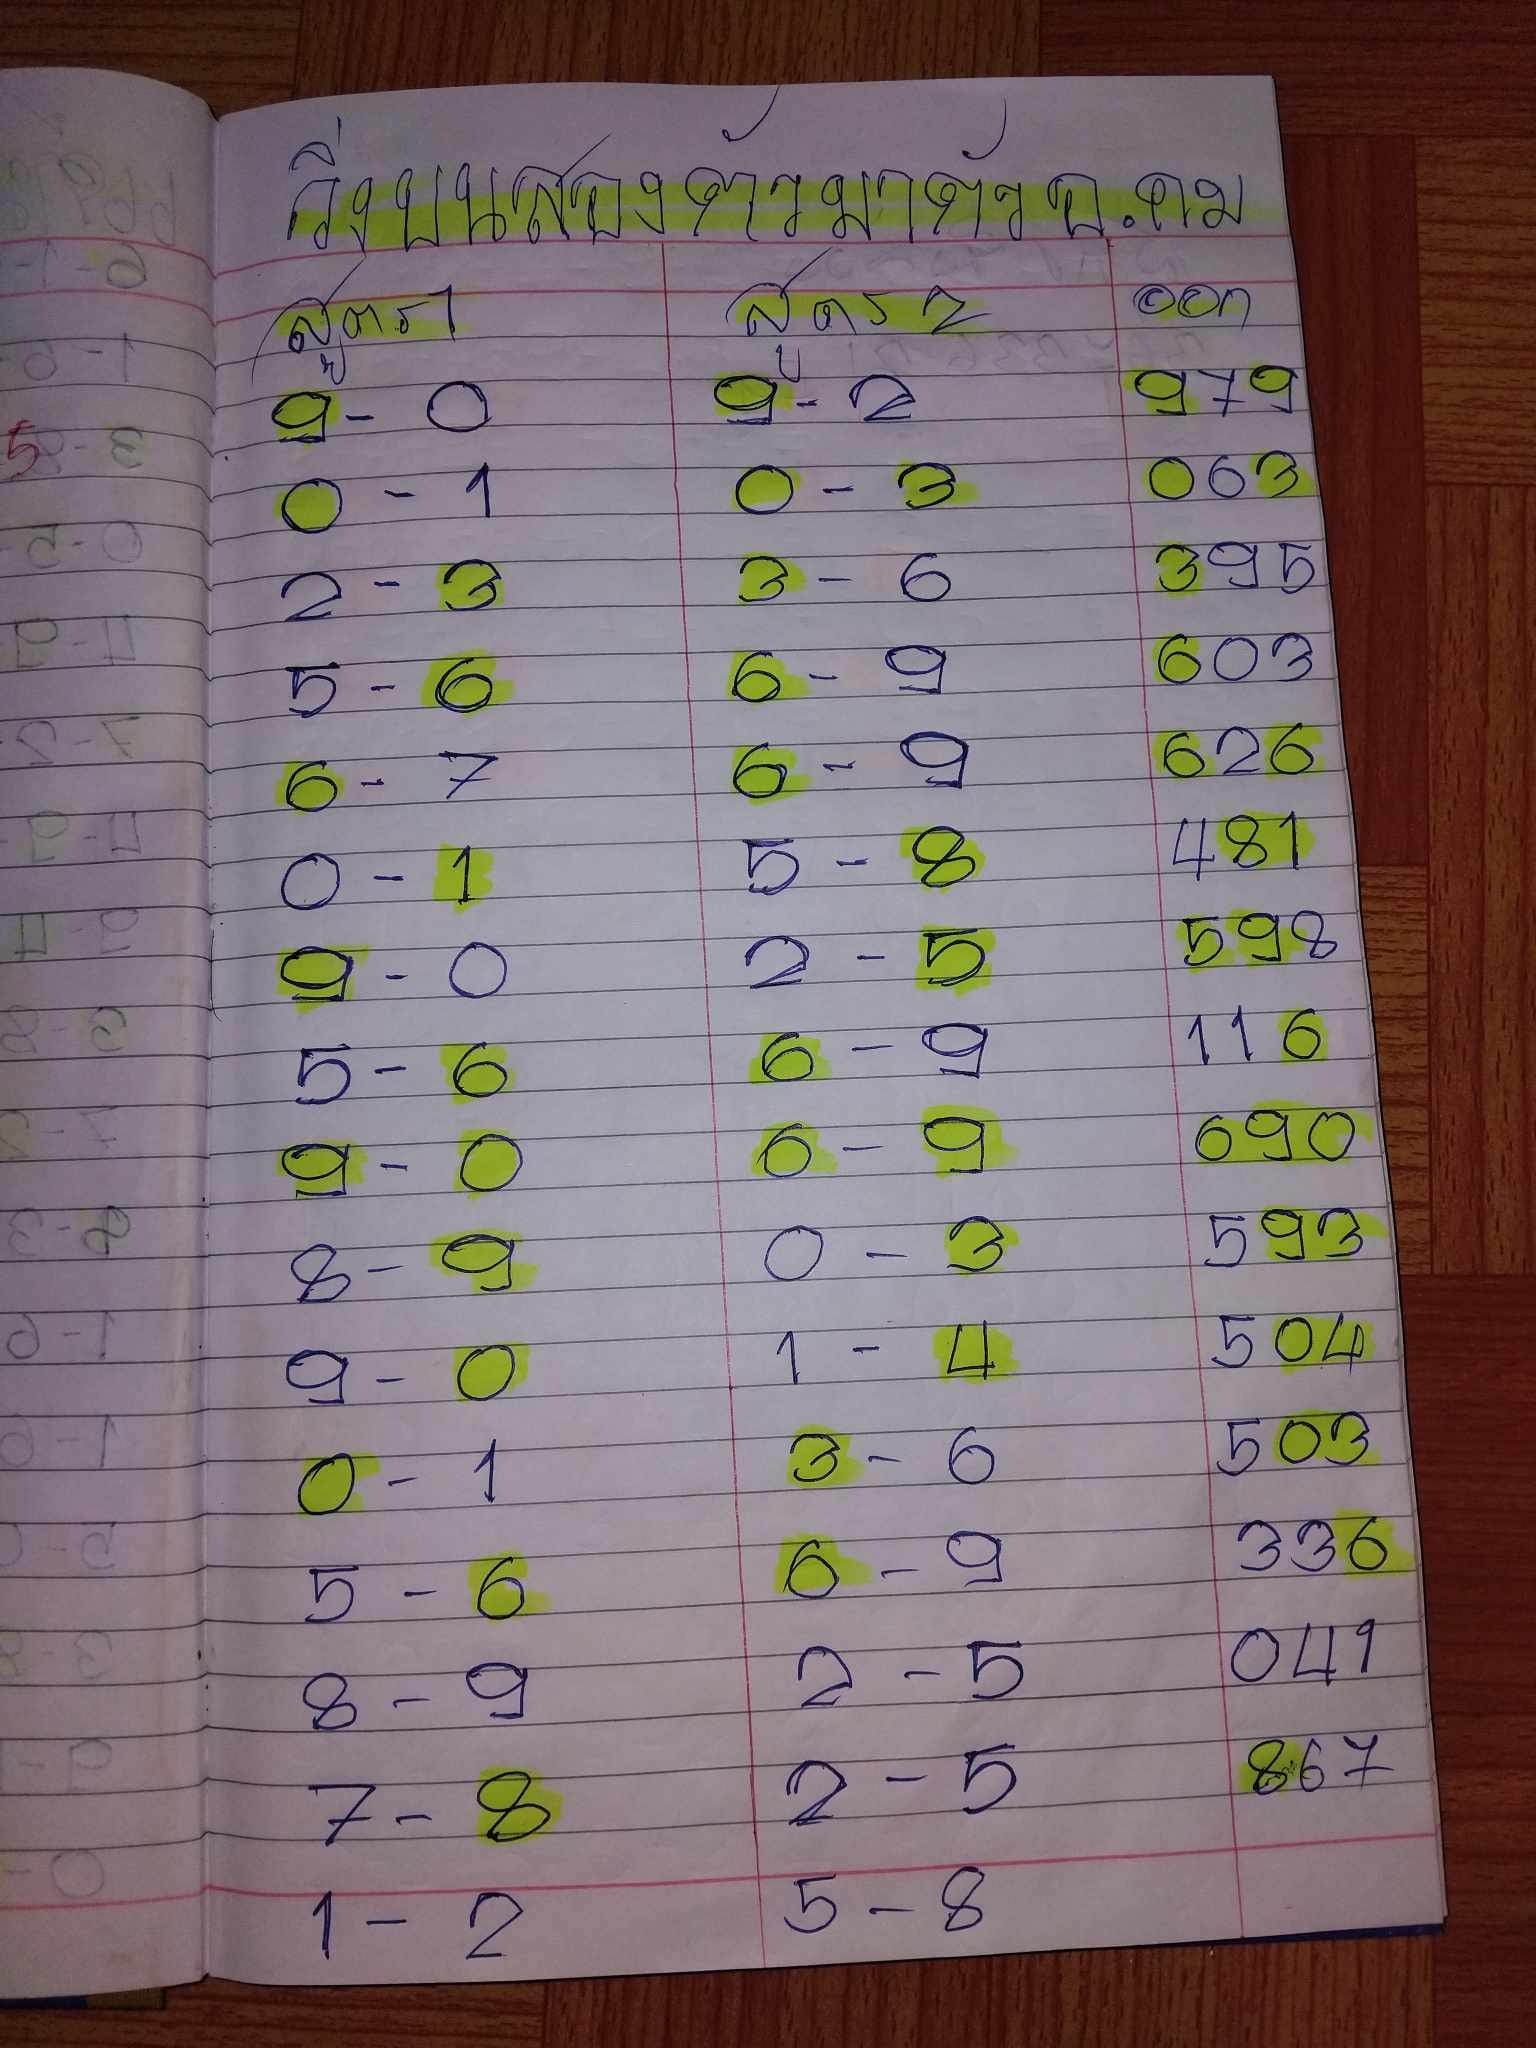 วิ่งบนสองตัวมาตัว อ.คม
สูตร1 สูตร 2 ออก
9 - 0 9 - 2 979
0 - 1 0 - 3 063
2 - 3 3 - 6 395
5 - 6 6 - 9 603
6 - 7 6 - 9 626
0 - 1 5 - 8 481
9 - 0 2 - 5 598
5 - 6 6 - 9 116
9 - 0 6 - 9 690
8 - 9 0 - 3 593
9 - 0 1 - 4 504
0 - 1 3 - 6 503
5 - 6 6 - 9 336
8 - 9 2 - 5 041
7 - 8 2 - 5 867
1 - 2 5 - 8
5